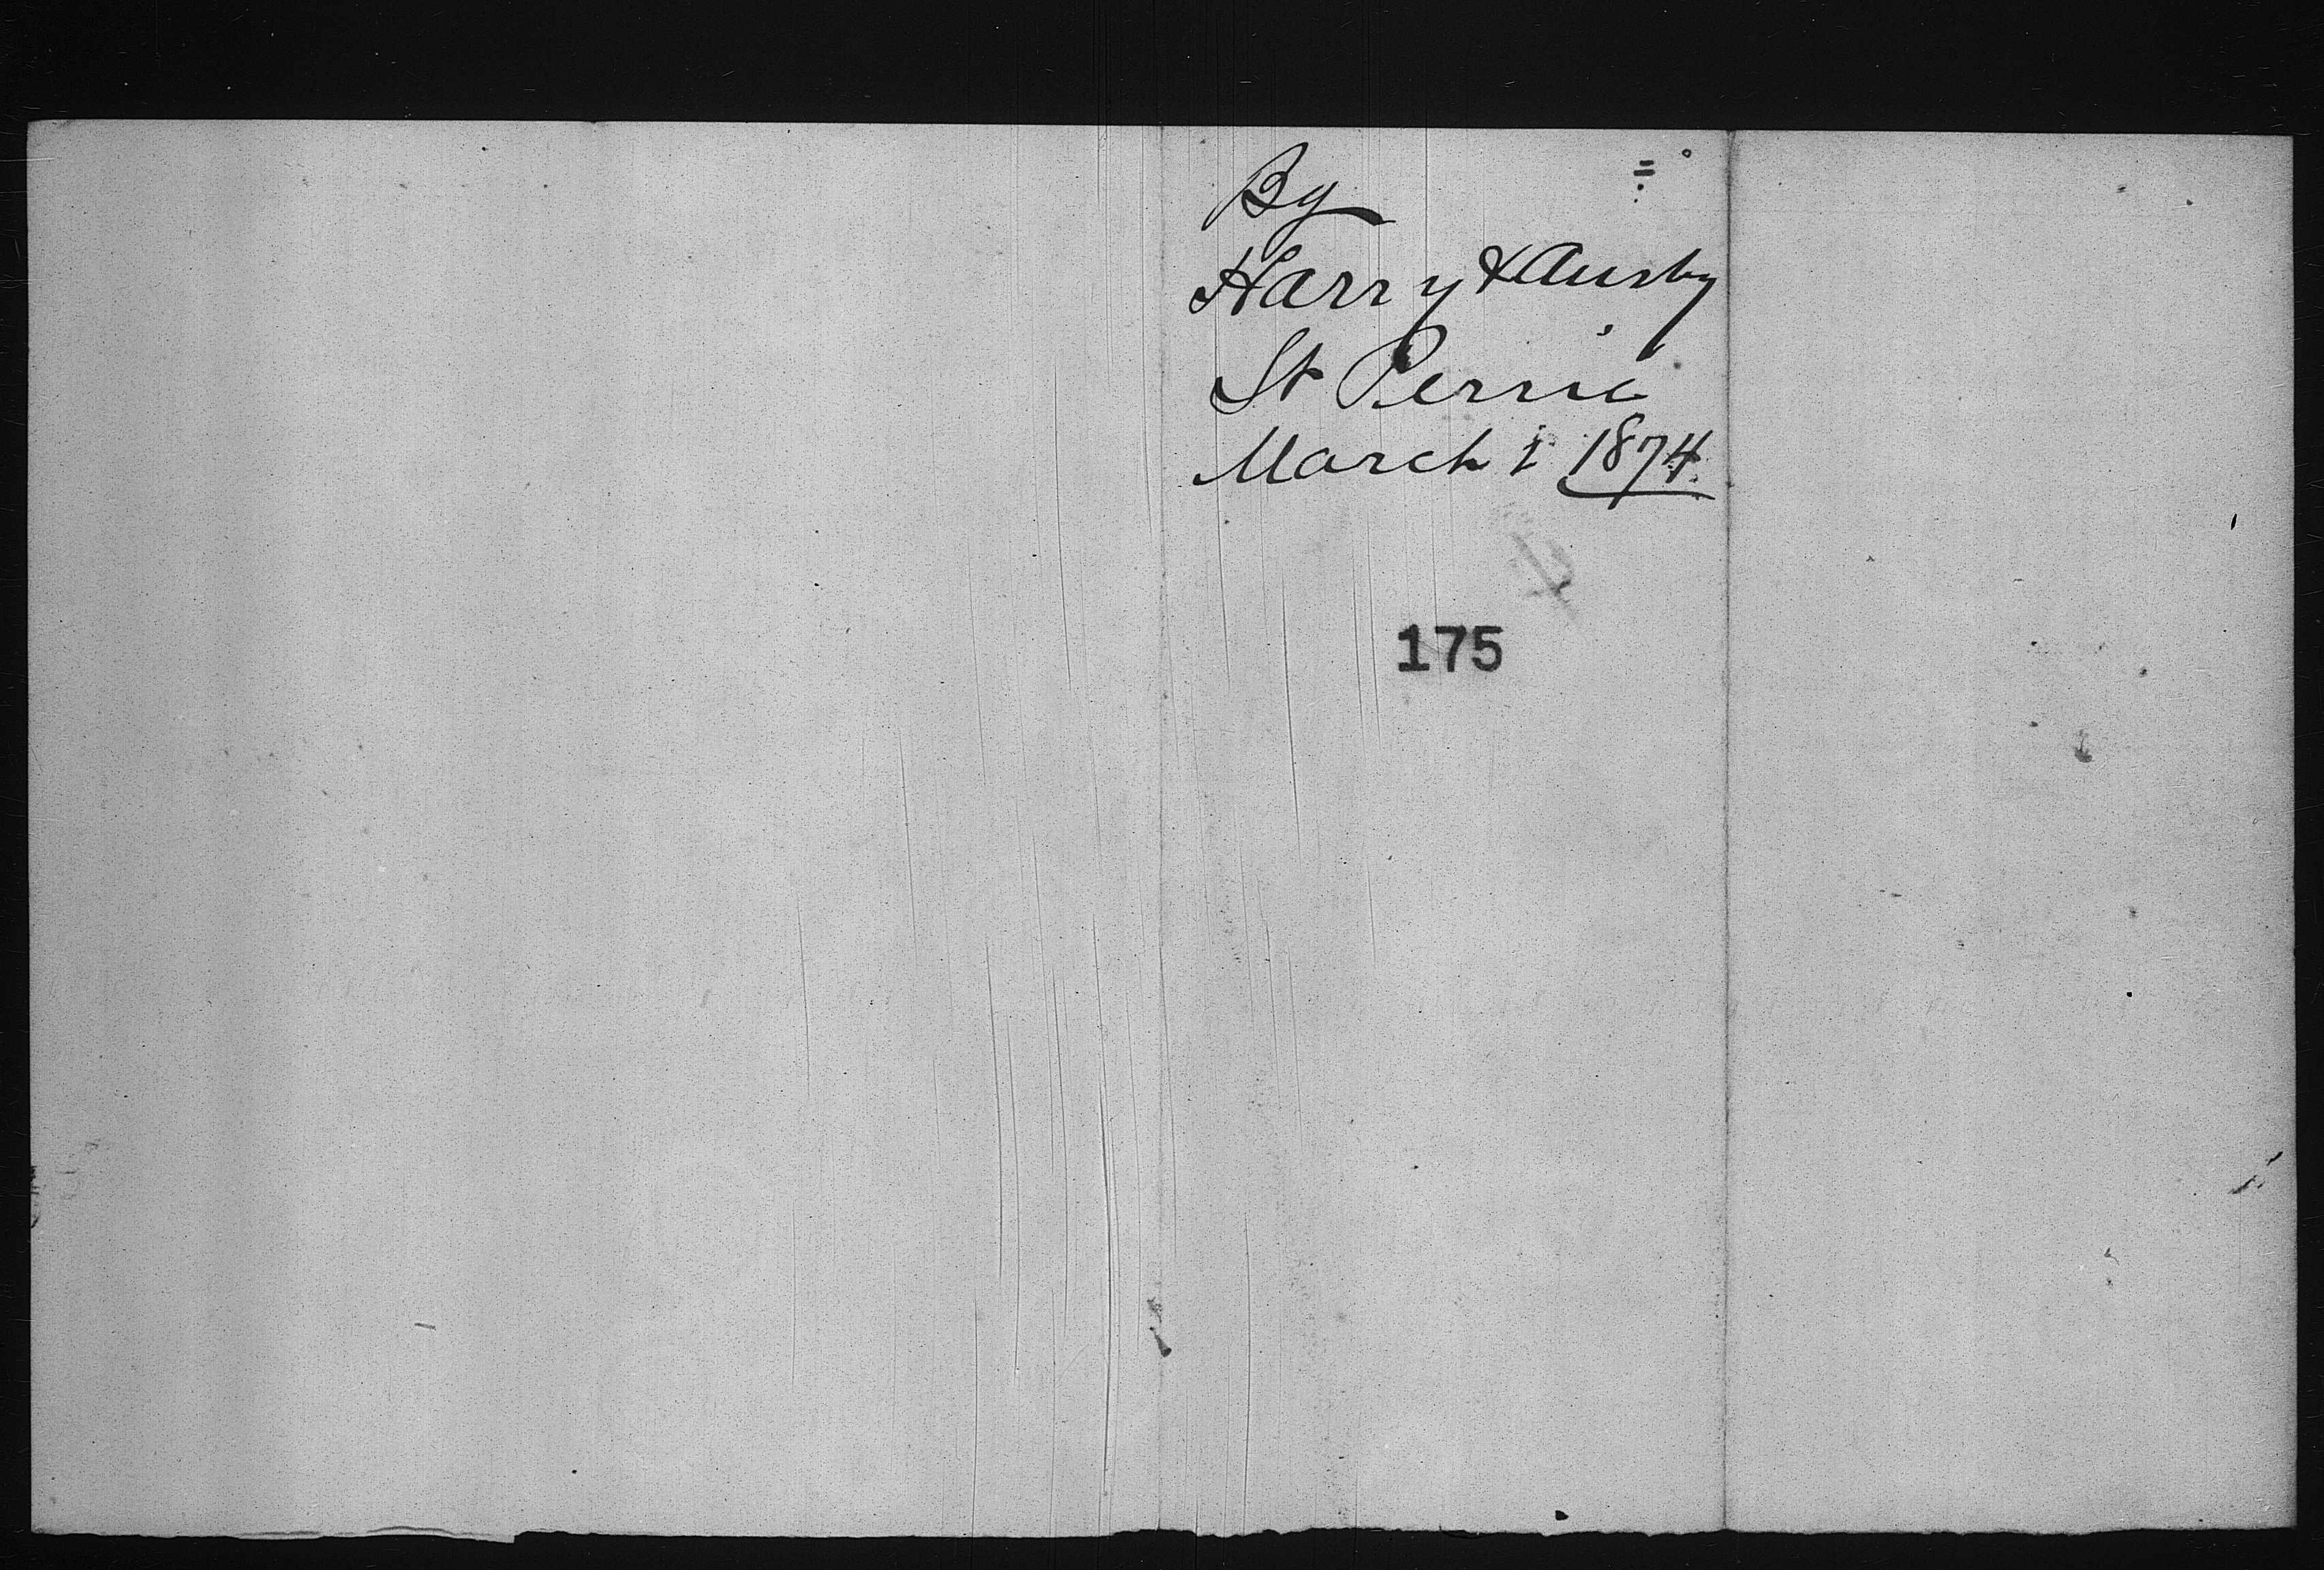 By
Harry & Ausby
St Perrie
March 1 1874.
175